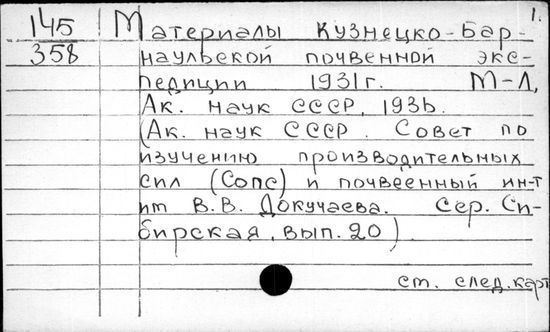 1.
145
358
Материалы Кузнецко-Бар-
наульской почвенной экс-
педиции 1931г. М-Л,
Ак. наук СССР, 1936.
(Ак. наук СССР. Совет по
изучению производительных
сил (Сопс) и почвеенный ин-т
им В.В. Докучаева. Сер. Си-
бирская, вып. 20)
ст. след.карт